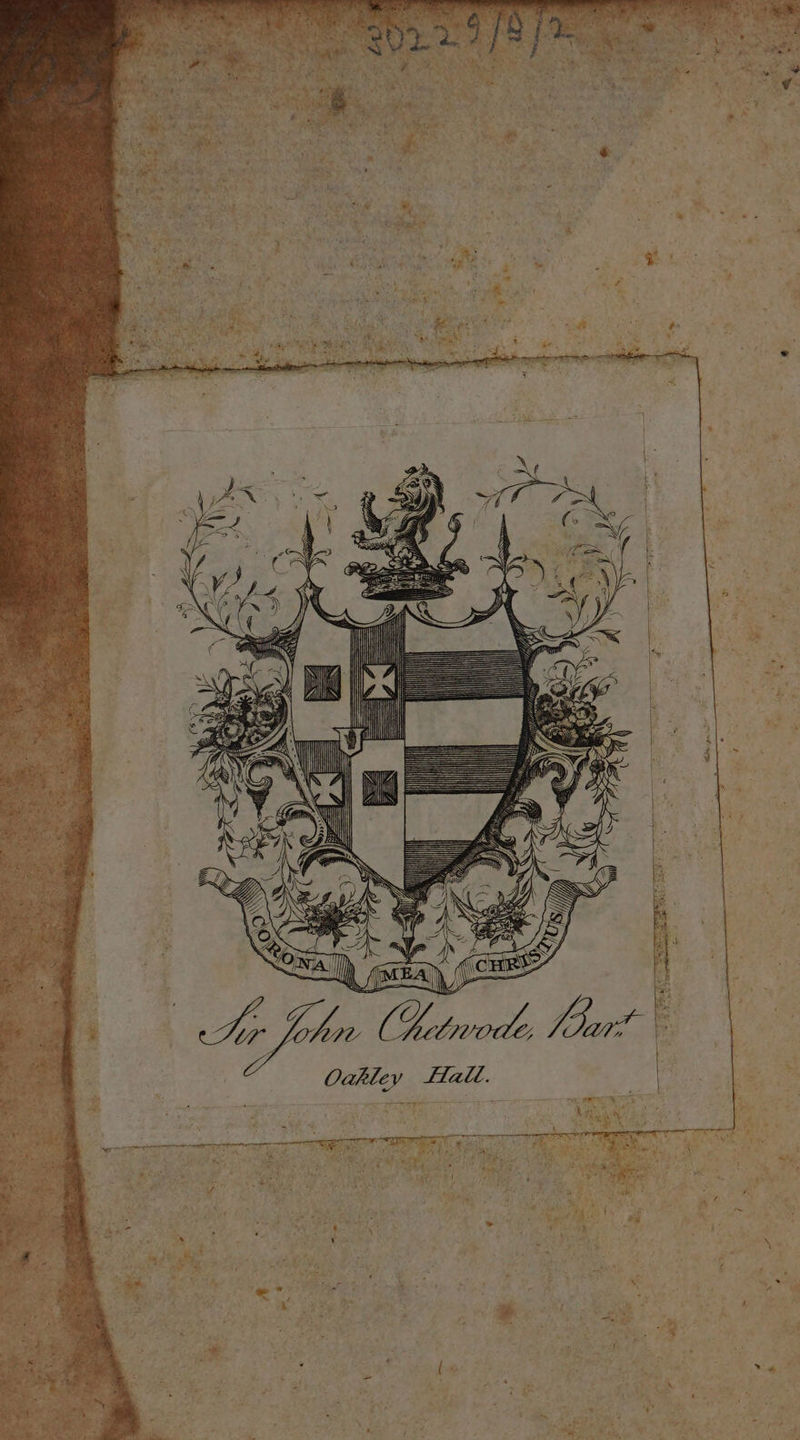 20229/B/2
CORONA MEA CHRISTUS
Sir John Chetwode, Bart
Oakley Hall.